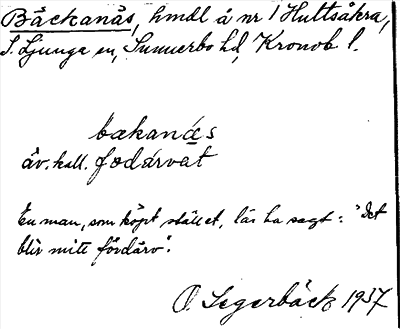 Bäckanäs, hmdl å nr 1 Hultsåkra,
S. Ljunga sn, Sunnerbo hd, Kronob l.
bakanás
äv. kall. fodárvat
En man, som köpt stället, lär ha sagt: "Det
blir mitt fördärv".
O. Segerbäck 1937